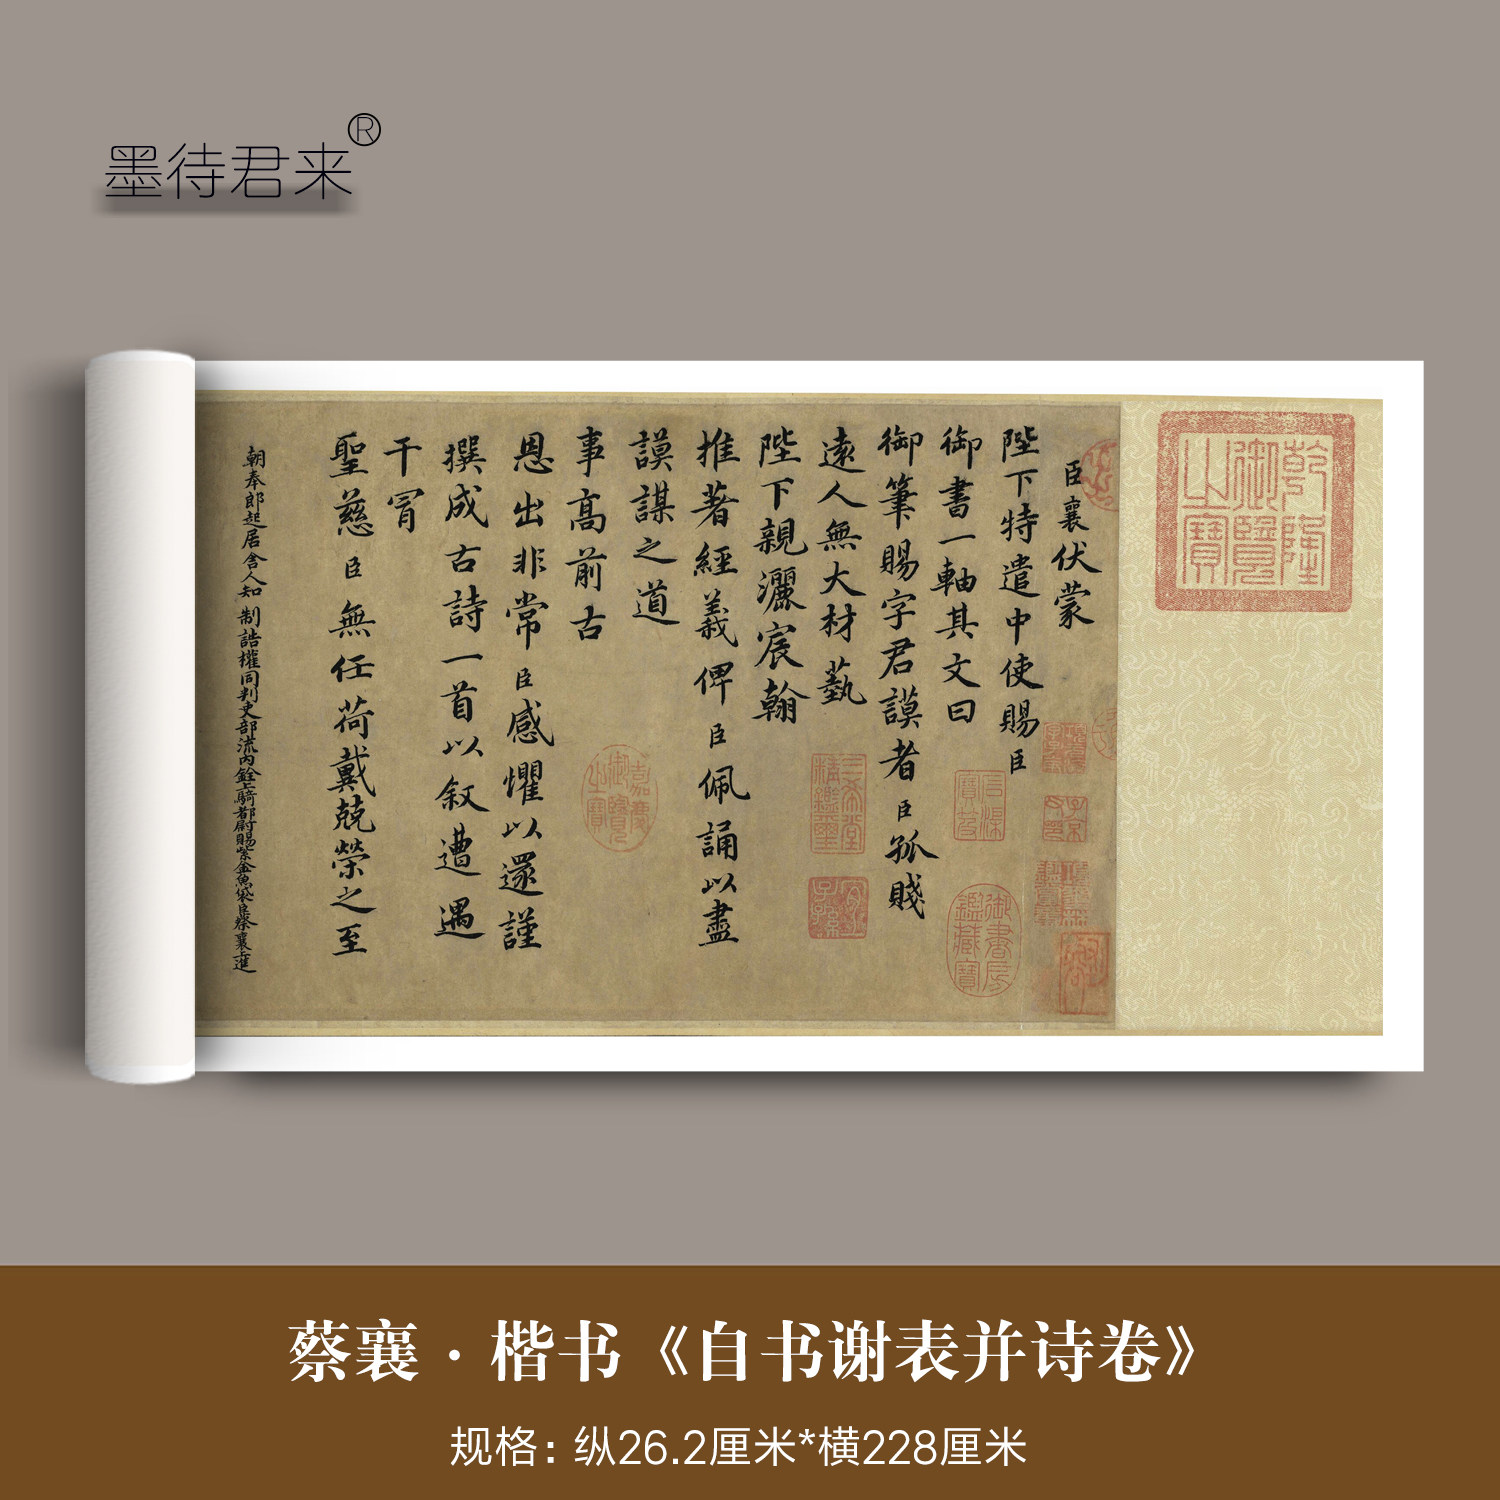 墨待君来®
乾隆
御覽
之寶
臣襄伏蒙
陛下特遣中使賜臣
御書一軸其文曰
御筆賜字君謨者臣孤賤
遠人無大材藝
陛下親灑宸翰
推著經義俾臣佩誦以盡
謨謀之道
事高前古
恩出非常臣感懼以還謹
撰成古詩一首以敘遭遇
干冒
聖慈臣無任荷戴兢榮之至
朝奉郎起居舍人知制誥權同判吏部流內銓上騎都尉賜紫金魚袋臣蔡襄上進
三希堂
精鑑璽
宜子孫
嘉慶
御覽
之寶
御書房
鑑藏寶
石渠
寶笈
蔡襄·楷书《自书谢表并诗卷》
规格：纵26.2厘米*横228厘米